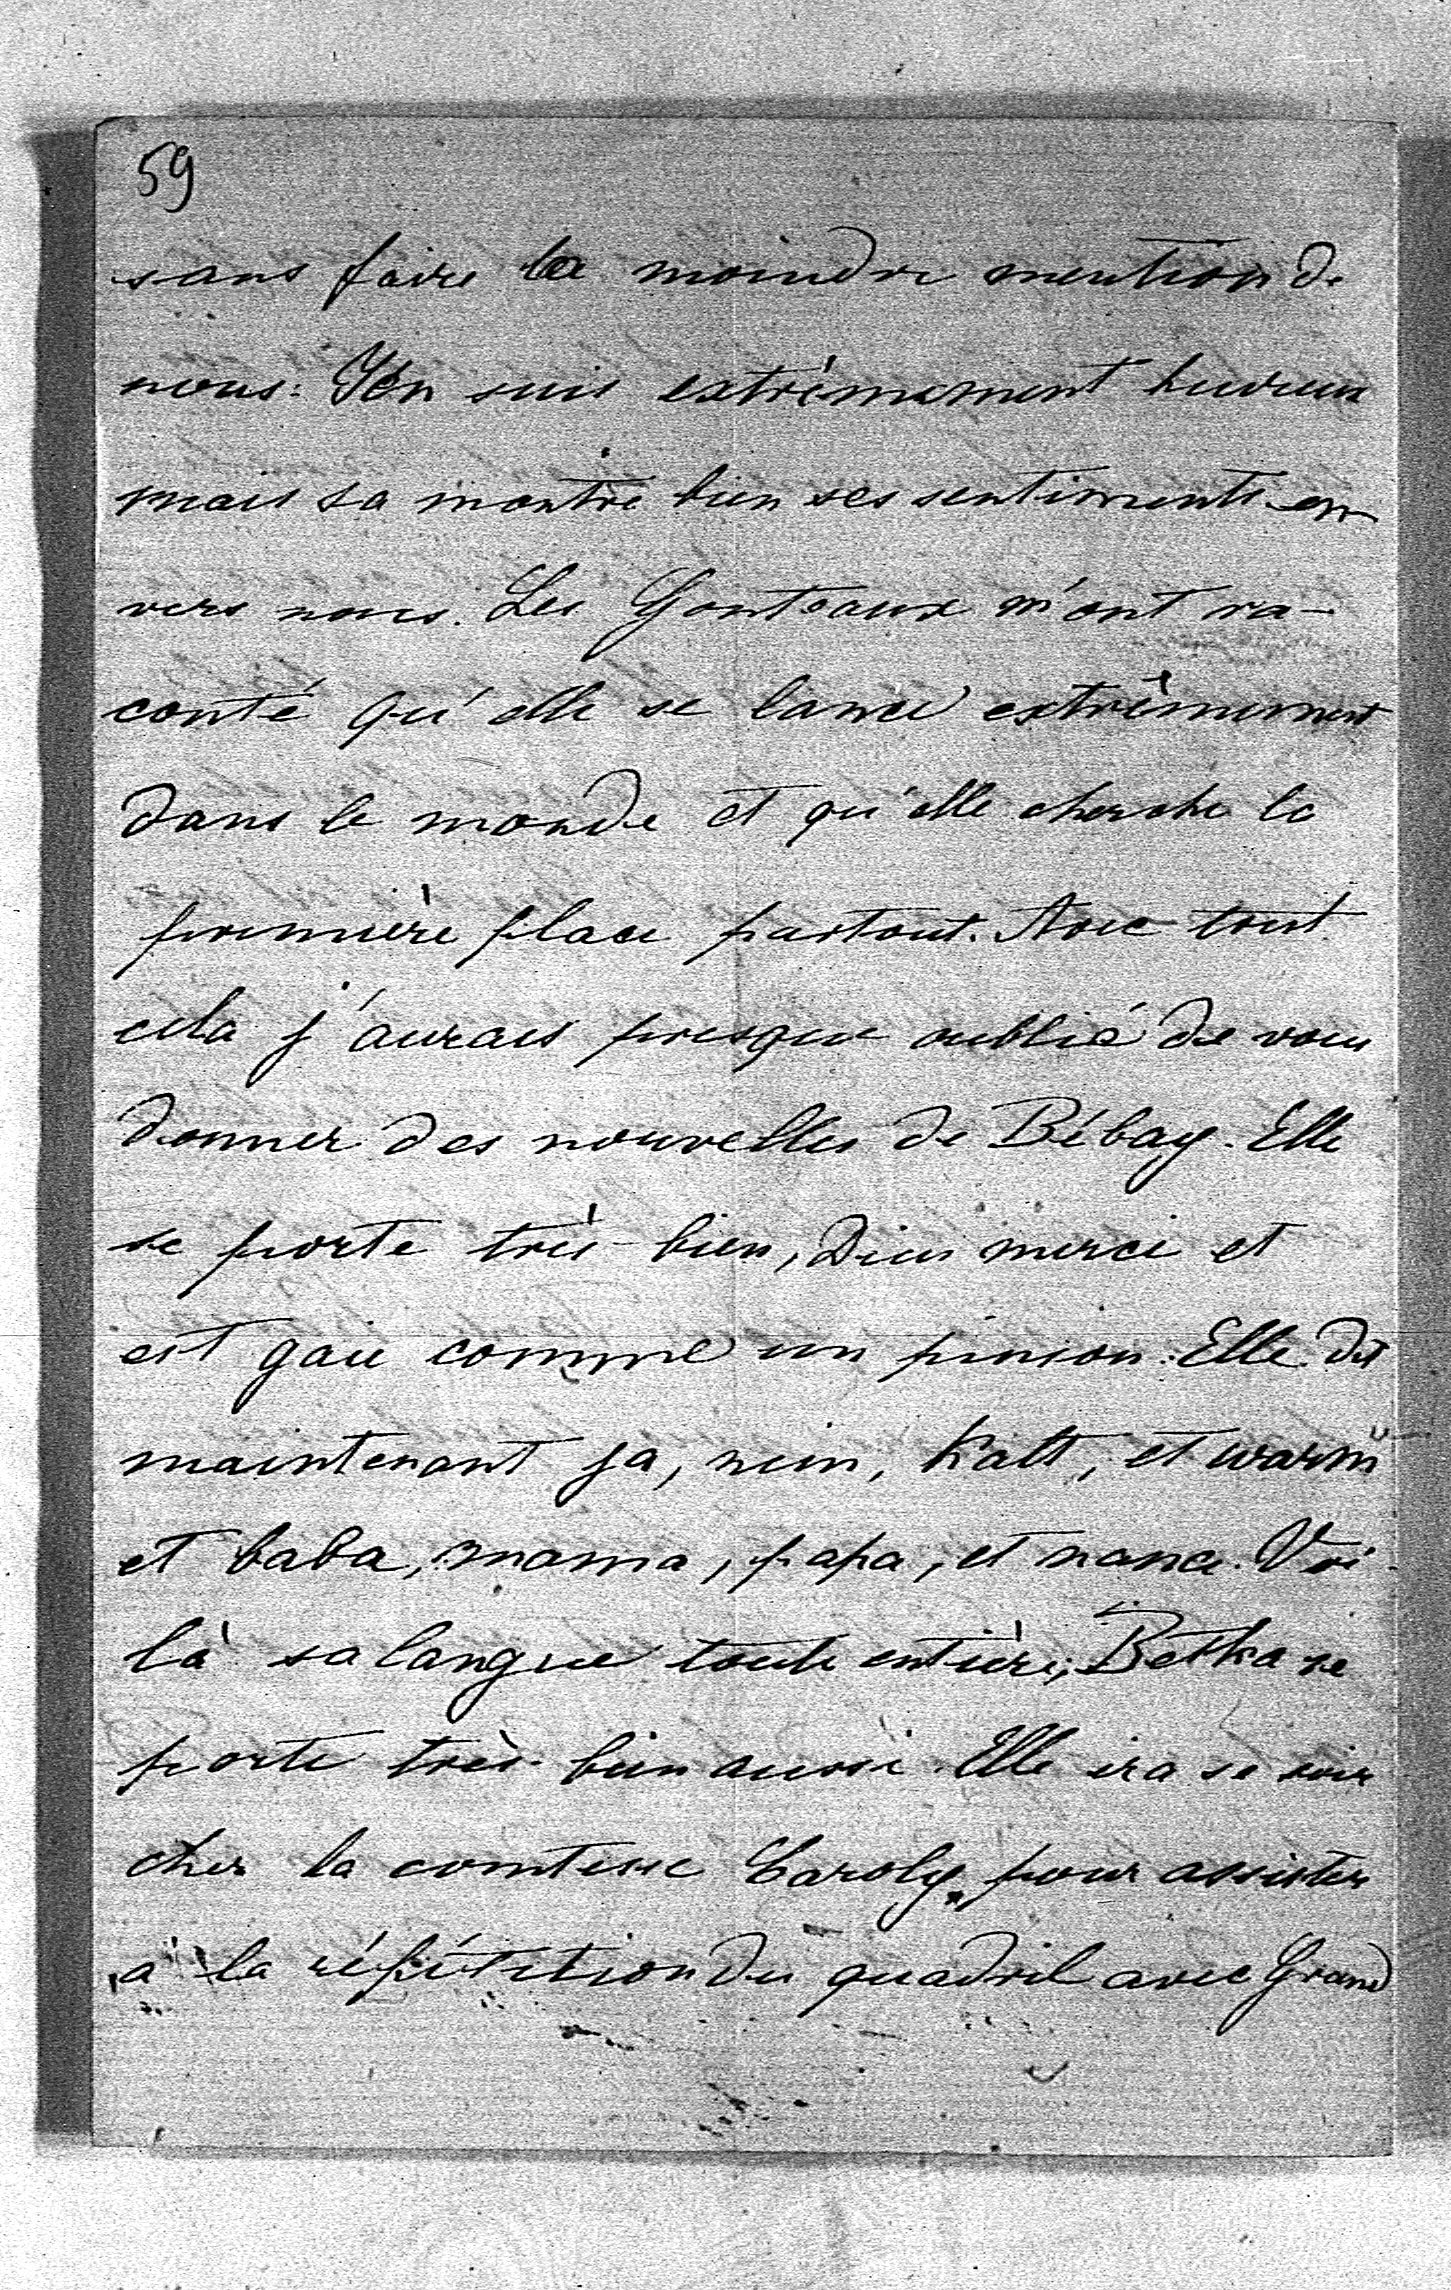 59
sans faire la moindre mention de
nous. J'en suis extrèmement heureux
mais sa montre bien ses sentiments en
vers nous. Les Gontoaux m'ont ra-
conté qu'elle se lance extrêmement
dans le monde et qu'elle cherche la
première place partout. Avec tout
cela j'aurais presque oublié de vous
donner des nouvelles de Bébay. Elle
se porte très-bien, Dieu merci et
est gaie comme un pinson. Elle dit
maintenant ja, nein, kalt, et warm
et baba, mama, papa, et nana. Voi-
là sa langue toute entière; Betka se
porte très-bien aussi. Elle ira se soir
chez la comtesse Caroly, pour assister
à la répétition du quadril avec Grand